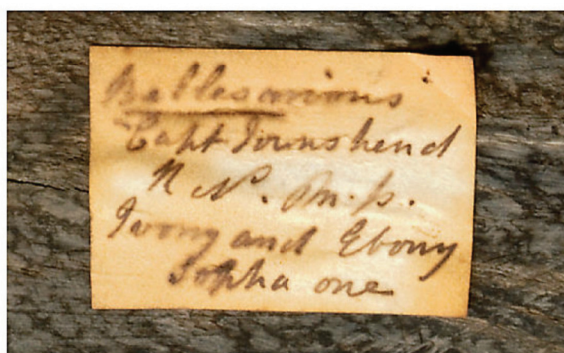 Bellesarious
Capt Townshend
R N. M.p.
Ivory and Ebony
Sopha one